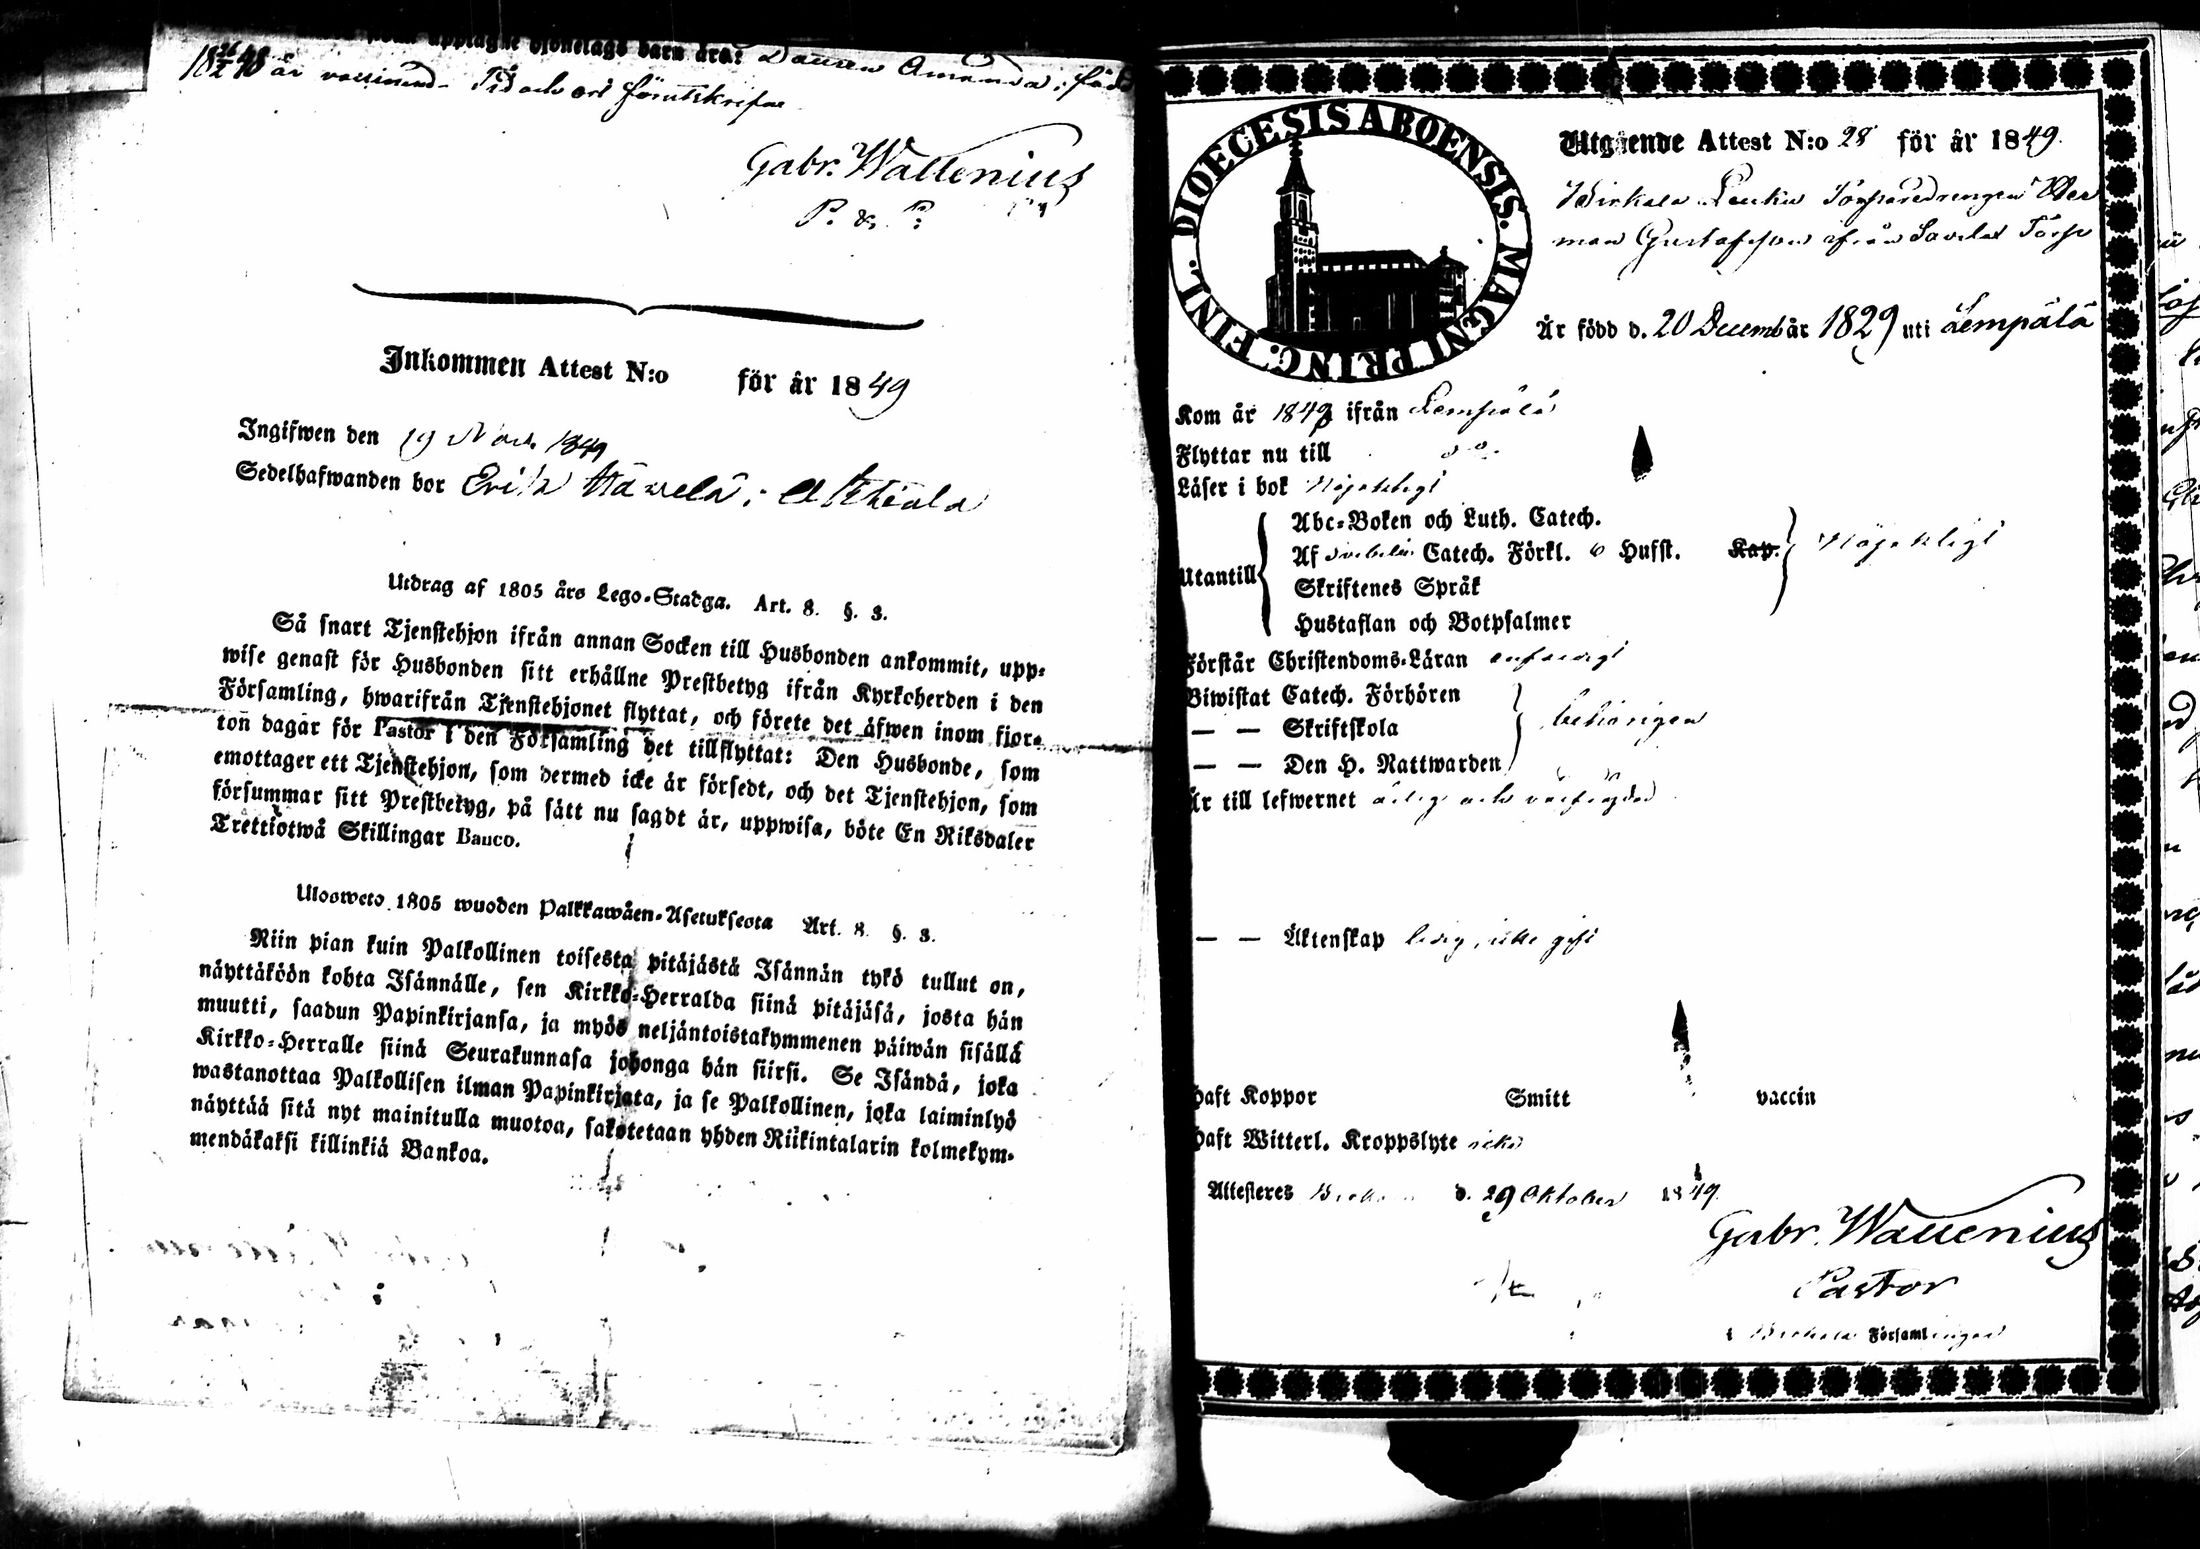 upptagne hjonelags barn åro: Dottren Amanda; född
18 26/2 48 är vaccinerad. Tid och ort förutskrifne
Gabr. Wallenius
P. & P.
Inkommen Attest N:o för år 1849
Ingifwen den 19 Nov. 1849
Sedelhafwanden bor Erik Häwelä i
Utdrag af 1805 års Lego-Stadga. Art. 8. §. 3.
Så snart Tjenstehjon ifrån annan Socken till Husbonden ankommit, upp-
wise genast för Husbonden sitt erhållne Prestbetyg ifrån Kyrkoherden i den
Församling, hwarifrån Tjenstehjonet flyttat, och förete det åfwen inom fjor-
ton dagar för Pastor i den Församling det tillflyttat: Den Husbonde, som
emottager ett Tjenstehjon, som dermed icke är försedt, och det Tjenstehjon, som
försummar sitt Prestbetyg, på sätt nu sagdt är, uppwisa, böte En Riksdaler
Trettiotwå Skillingar Banco.
Ulosweto 1805 wuoden Palkkawåen-Asetuksesta Art. 8. §. 3.
Niin pian kuin Palkollinen toisesta pitäjästä Isännän tykö tullut on,
näyttäköön kohta Isännälle, sen Kirkko-Herralda siinä pitäjäsä, josta hän
muutti, saadun Papinkirjansa, ja myös neljäntoistakymmenen päiwän sisällä
Kirkko-Herralle siinä Seurakunnasa johonga hän siirsi. Se Isändä, joka
wastanottaa Palkollisen ilman Papinkirjata, ja se Palkollinen, joka laiminlyö
näyttää sitä nyt mainitulla muotoa, sakotetaan yhden Riikintalarin kolmekym-
mendäkaksi killinkiä Bankoa.
DIOECESIS ABOENSIS. MAGNI PRINC. FINL.
Utgående Attest N:o 28 för år 1849.
Birkala Torparedrengen Her
man Gustafsson ifrån Torp
Är född d. 20 Decemb år 1829 uti Lempälä
Kom år 1849 ifrån Lempälä
Flyttar nu till d:o
Läser i bok Nöjaktligt
Utantill
Abc-Boken och Luth. Catech.
Af Svebelii Catech. Förkl. 6 Hufst. Kap. Nöjaktligt
Skriftenes Språk
Hustaflan och Botpsalmer
Förstår Christendoms-Läran enfaldigt
Biwistat Catech. Förhören
— — Skriftskola behörigen
— — Den H. Nattwarden
Är till lefwernet ärlig och välfrägdad
— — Äktenskap ledig, icke gift
Haft Koppor Smitt vaccin
Haft Witterl. Kroppslyte icke
Attesteres Birkala d. 29 Oktober 1849.
Gabr. Wallenius
Pastor
i Birkala Församlingen